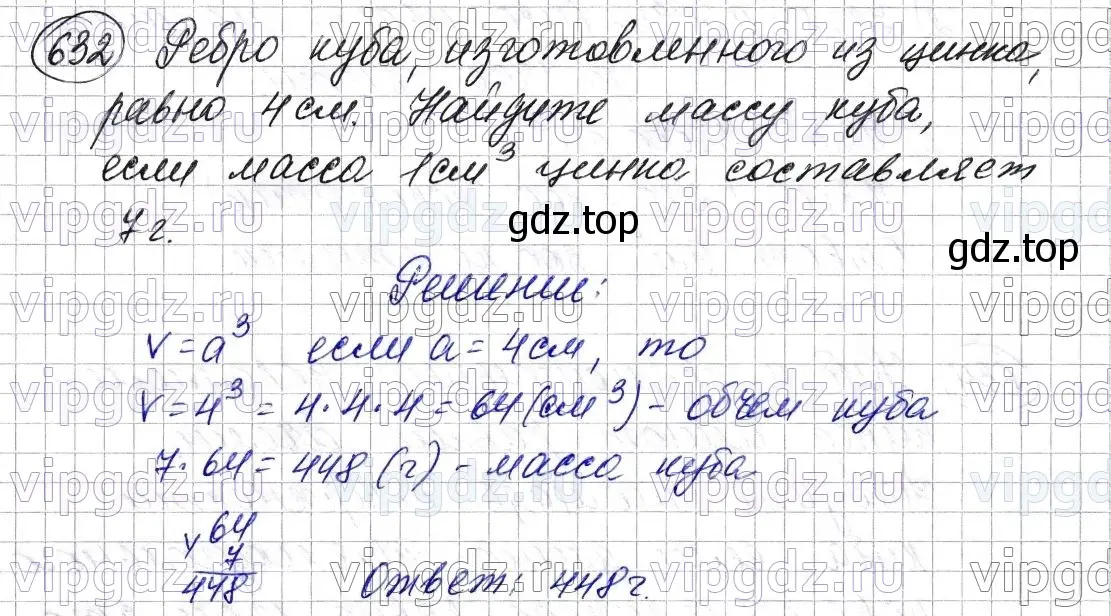 632 Ребро куба, изготовленного из цинка,
равно 4 см. Найдите массу куба,
если масса 1 см³ цинка составляет
7 г.
gdz.top
gdz.top
Решение:
V = a³ если a = 4 см, то
V = 4³ = 4 · 4 · 4 = 64 (см³) - объем куба
7 · 64 = 448 (г) - масса куба
× 64
7
448
Ответ: 448 г.
vipgdz.ru